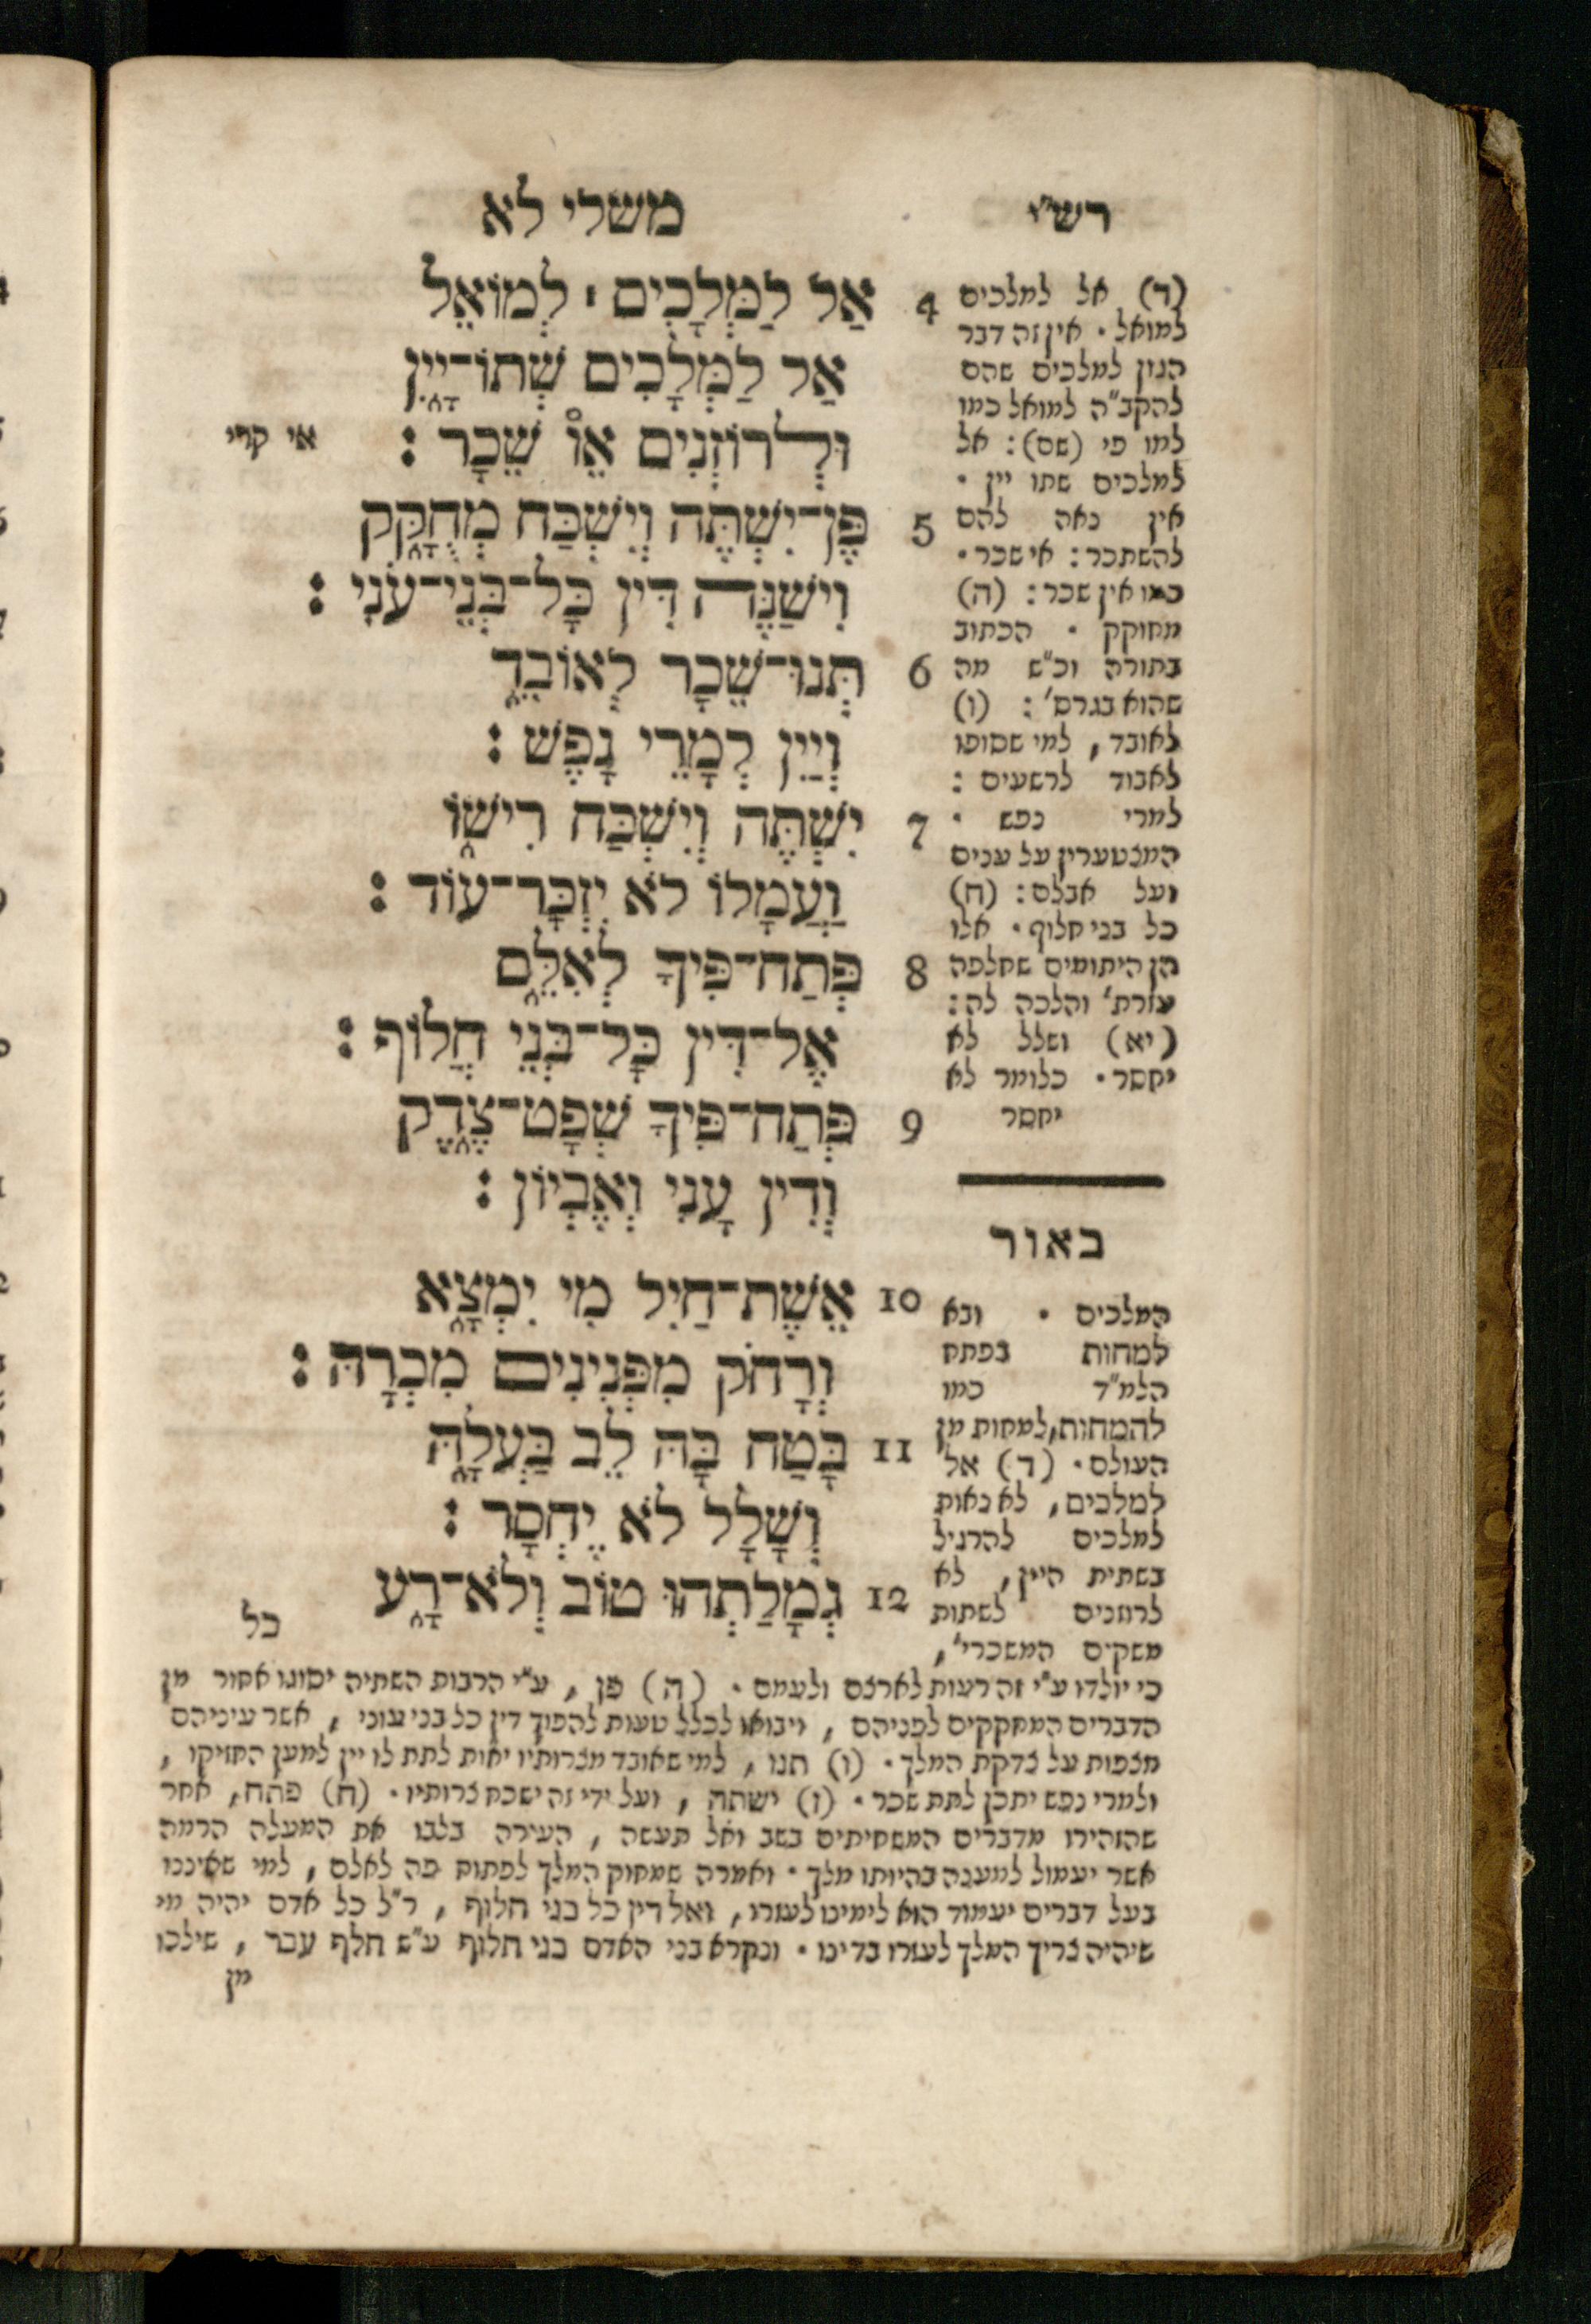 רש״י
משלי לא
4 אַל לַמְּלָכִים ׀ לְמוֹאֵל
אַל לַמְּלָכִים שְׁתוֹ־יָיִן
וּלְרוֹזְנִים אֵו שֵׁכָר :
או קרי
5 פֶּן־יִשְׁתֶּה וְיִשְׁכַּח מְחֻקָּק
וִישַׁנֶּה דִּין כָּל־בְּנֵי־עֹנִי :
6 תְּנוּ־שֵׁכָר לְאוֹבֵד
וְיַיִן לְמָרֵי נָפֶשׁ :
7 יִשְׁתֶּה וְיִשְׁכַּח רִישׁוֹ
וַעֲמָלוֹ לֹא יִזְכָּר־עוֹד :
8 פְּתַח־פִּיךָ לְאִלֵּם
אֶל־דִּין כָּל־בְּנֵי חֲלוֹף :
9 פְּתַח־פִּיךָ שְׁפָט־צֶדֶק
וְדִין עָנִי וְאֶבְיוֹן :
10 אֵשֶׁת־חַיִל מִי יִמְצָא
וְרָחֹק מִפְּנִינִים מִכְרָהּ :
11 בָּטַח בָּהּ לֵב בַּעְלָהּ
וְשָׁלָל לֹא יֶחְסָר :
12 גְּמָלַתְהוּ טוֹב וְלֹא־רָע
כל
(ד) אל למלכים
למואל · אין זה דבר
הגון למלכים שהם
להקב״ה למואל כמו
למו פי (שם): אל
למלכים שתו יין ·
אין נאה להם
להשתכר: אי שכר ·
כמו אין שכר: (ה)
מחוקק · הכתוב
בתורה וכ״ש מה
שהוא בגרס׳: (ו)
לאובד, למי שסופו
לאבוד לרשעים :
למרי נפש ·
המצטערין על ענים
ועל אבלם: (ח)
כל בני חלוף · אלו
הן היתומים שחלפה
עזרת׳ והלכה לה:
(יא) ושלל לא
יחסר · כלומר לא
יחסר
באור
המלכים · ובא
למחות בפתח
הלמ״ד כמו
להמחות, למחות מן
העולם · (ד) אל
למלכים, לא נאות
למלכים להרגיל
בשתית היין, לא
לרוזנים לשתות
משקים המשכרי׳,
כי יולדו ע״י זה רעות לארצם ולעמם · (ה) פן, ע״י הרבות השתיה יסוגו אחור מן
הדברים המחקקים לפניהם, ויבואו לכלל טעות להפוך דין כל בני עוני, אשר עיניהם
מצפות על צדקת המלך · (ו) תנו, למי שאובד מצרותיו יאות לתת לו יין למען החזיקו,
ולמרי נפש יתכן לתת שכר · (ז) ישתה, ועל ידי זה ישכח צרותיו · (ח) פתח, אחר
שהזהירו מדברים המשחיתים בשב ואל תעשה, העירה בלבו את המעלה הרמה
אשר יעמול למענה בהיותו מלך · ואמרה שמחוק המלך לפתוח פה לאלם, למי שאיננו
בעל דברים יעמוד הוא לימינו לעזרו, ואל דין כל בני חלוף, ר״ל כל אדם יהיה מי
שיהיה צריך המלך לעזרו בדינו · ונקרא בני האדם בני חלוף ע״ש חלף עבר, שילכו
מן